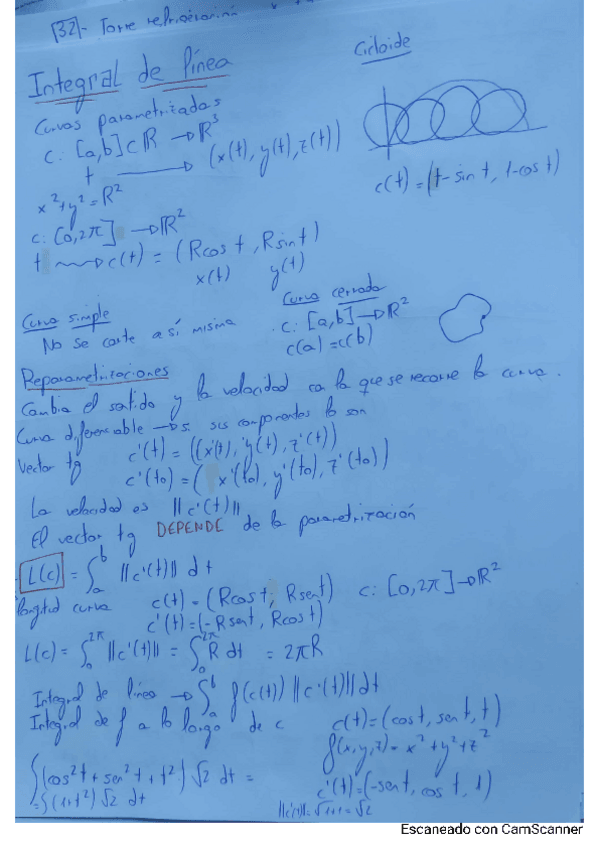 [32]- Torre refrigeración
Integral de línea
Cicloide
Curvas parametrizadas
c: [a,b] ⊂ ℝ → ℝ³
t → (x(t), y(t), z(t))
c(t) = (t - sin t, 1 - cos t)
x² + y² = R²
c: [0, 2π] → ℝ²
t ⤳ c(t) = (R cos t, R sin t)
x(t) y(t)
Curva simple
No se corte a sí misma
Curva cerrada
c: [a,b] → ℝ²
c(a) = c(b)
Reparametrizaciones
Cambia el sentido y la velocidad con la que se recorre la curva.
Curva diferenciable → si sus componentes lo son
Vector tg c'(t) = (x'(t), y'(t), z'(t))
c'(t₀) = (x'(t₀), y'(t₀), z'(t₀))
La velocidad es ||c'(t)||
El vector tg DEPENDE de la parametrización
L(c) = ∫ₐᵇ ||c'(t)|| dt
longitud curva c(t) = (R cos t, R sen t) c: [0, 2π] → ℝ²
c'(t) = (-R sen t, R cos t)
L(c) = ∫₀²π ||c'(t)|| = ∫₀²π R dt = 2πR
Integral de línea → ∫ₐᵇ f(c(t)) ||c'(t)|| dt
Integral de f a lo largo de c c(t) = (cos t, sen t, t)
f(x,y,z) = x² + y² + z²
∫(cos²t + sen²t + t²) √2 dt = c'(t) = (-sen t, cos t, 1)
= ∫(1+t²) √2 dt ||c'(t)|| = √1+1 = √2
Escaneado con CamScanner